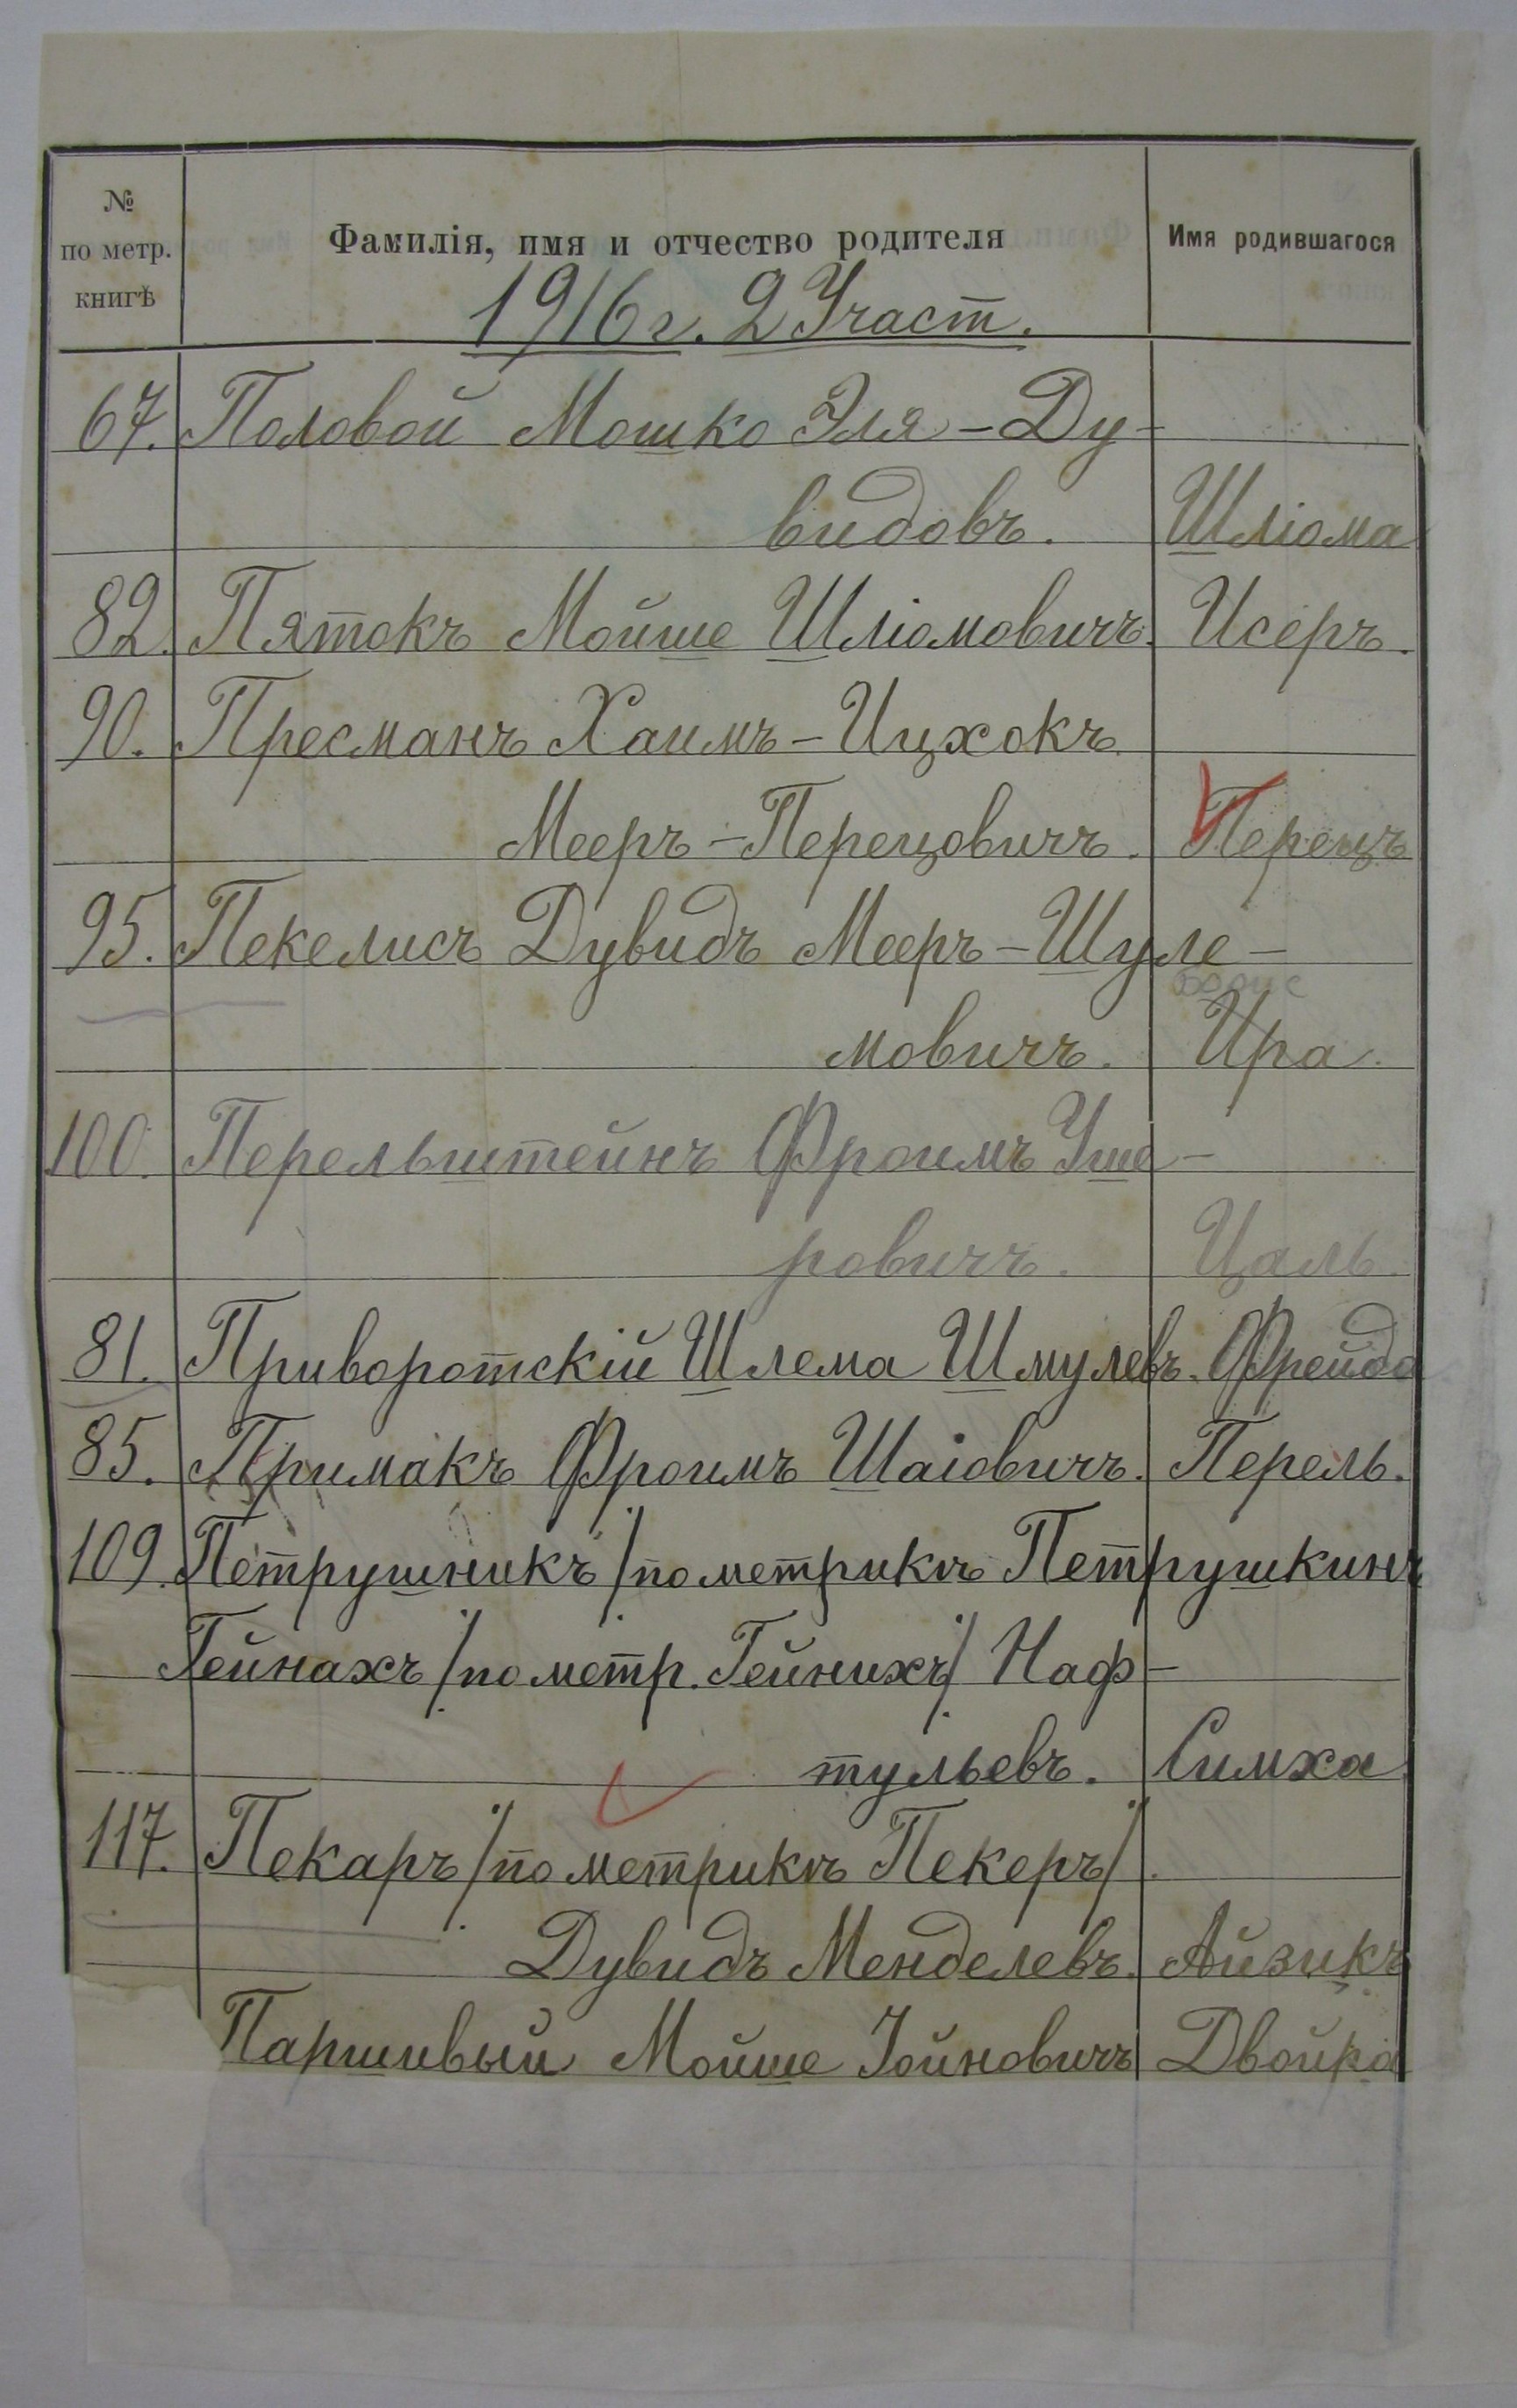 № по метр. книгѣ Фамилія, имя и отчество родителя Имя родившагося
1916 г. 2 Участ.
67. Половой Мошко Эля-Ду-
видовъ. Шліома
82. Пятокъ Мойше Шліомовичъ. Исеръ.
90. Пресманъ Хаимъ-Ицхокъ
Мееръ-Перецовичъ. Перецъ
95. Пекелисъ Дувидъ Мееръ-Шуле-
Борис
мовичъ. Ира.
100. Перельштейнъ Фроимъ Уше-
ровичъ. Цаль
81. Приворотскій Шлема Шмулевъ. Фрейда
85. Примакъ Фроимъ Шаіовичъ. Перель.
109. Петрушникъ /по метрикѣ Петрушкинъ
Гейнахъ /по метр. Гейнихъ/ Наф-
тульевъ. Симха
117. Пекаръ /по метрикѣ Пекеръ/
Дувидъ Менделевъ. Айзикъ
Паршивый Мойше Іойновичъ Двойра